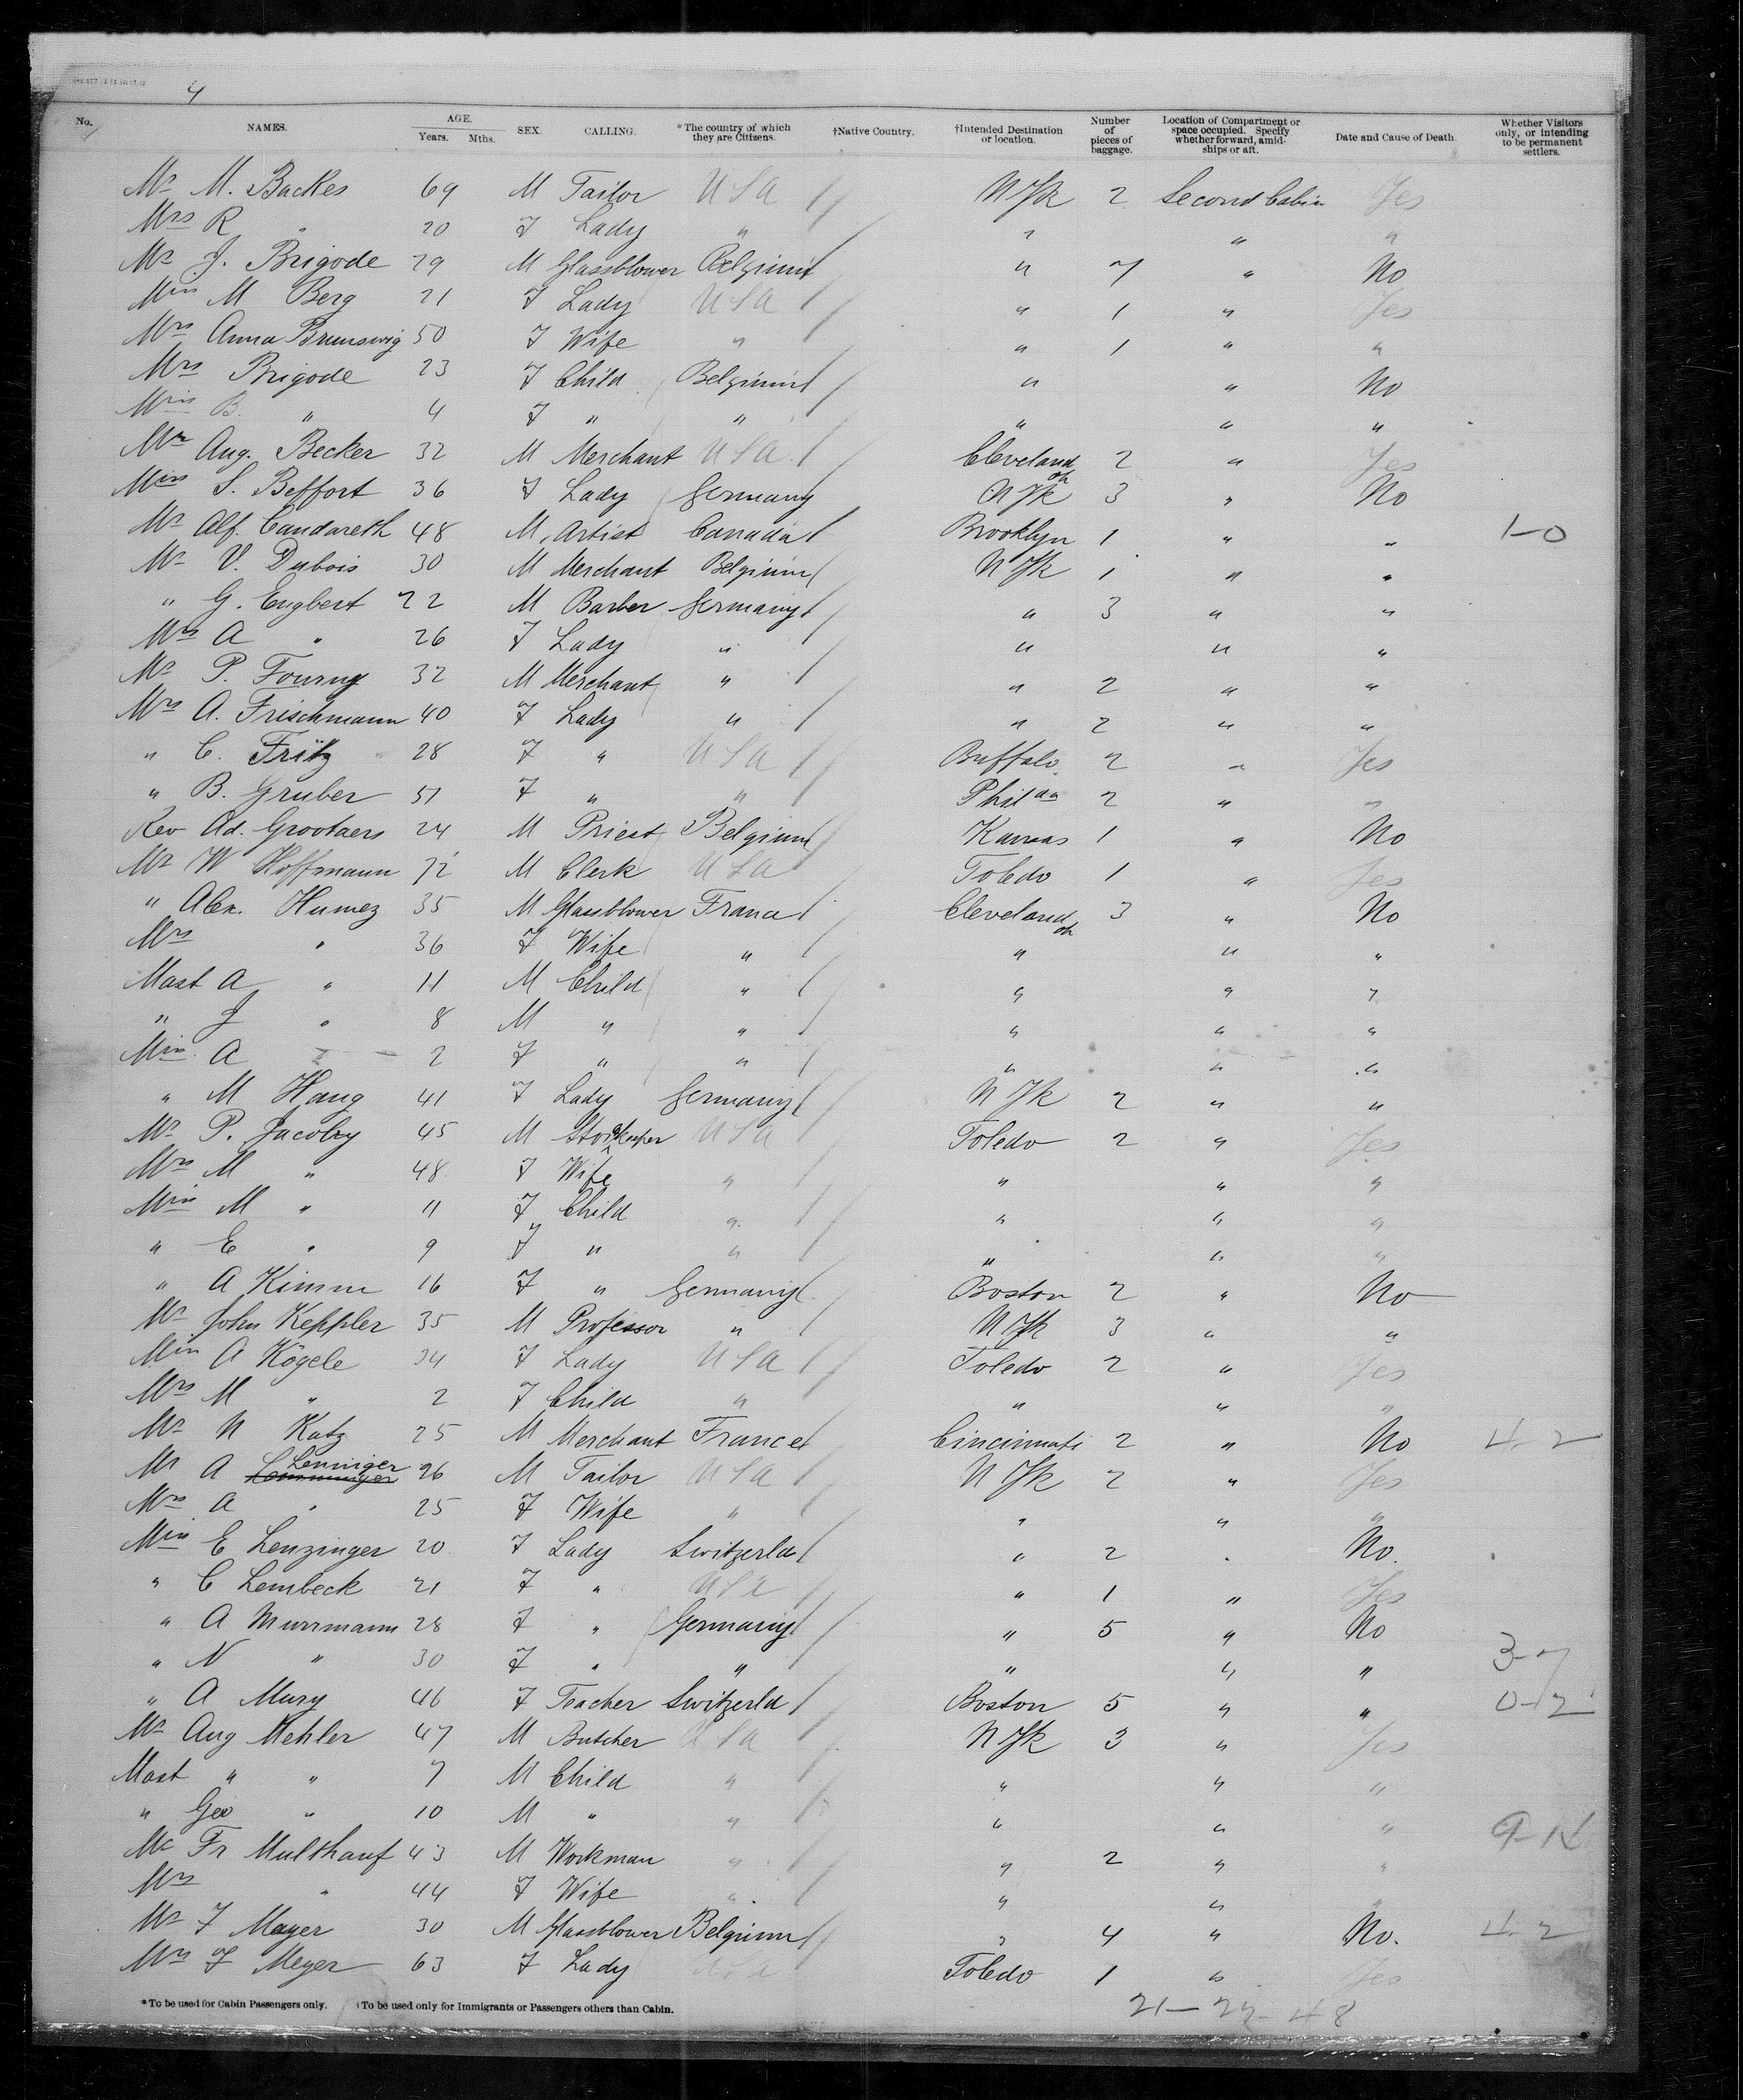 4
No. NAMES. AGE. Years. Mths. SEX. CALLING. *The country of which they are Citizens. †Native Country. †Intended Destination or location. Number of pieces of baggage. Location of Compartment or space occupied. Specify whether forward, amidships or aft. Date and Cause of Death. Whether Visitors only, or intending to be permanent settlers.
Mr M. Backes 69 M Tailor USA NYk 2 Second Cabin Yes
Mrs R " 20 F Lady " " " "
Mr J. Brigode 29 M Glassblower Belgium " 7 " No
Miss M Berg 21 F Lady USA " 1 " Yes
Mrs Anna Brunswig 50 F Wife " " 1 " "
Mrs Brigode 23 F Child Belgium " " No
Miss B. " 4 F " " " " "
Mr Aug. Becker 32 M Merchant USA Cleveland oh 2 " Yes
Miss S. Beffort 36 F Lady Germany NYk 3 " No
Mr Alf. Candareth 48 M Artist Canada Brooklyn 1 " " 1-0
Mr V. Dubois 30 M Merchant Belgium NYk 1 " "
" G. Engbert 22 M Barber Germany " 3 " "
Mrs A " 26 F Lady " " " "
Mr P. Fourny 32 M Merchant " " 2 " "
Mrs A. Frischmann 40 F Lady " " 2 " "
" C. Fritz 28 F " USA Buffalo 2 " Yes
" B. Gruber 51 F " " Phil da 2 " "
Rev Ad. Grootaers 24 M Priest Belgium Kansas 1 " No
Mr W Hoffmann 72 M Clerk USA Toledo 1 " Yes
" Alex. Humez 35 M Glassblower France Cleveland oh 3 " No
Mrs " 36 F Wife " " " "
Mast A " 11 M Child " " " "
" J " 8 M " " " " "
Miss A " 2 F " " " " "
" M Haug 41 F Lady Germany NYk 2 " "
Mr P. Jacoby 45 M Storekeeper USA Toledo 2 " Yes
Mrs M " 48 F Wife " " " "
Miss M " 11 F Child " " " "
" E " 9 F " " " " "
" A Kimm 16 F " Germany Boston 2 " No
Mr John Keppler 35 M Professor " NYk 3 " "
Miss A Kögele 34 F Lady USA Toledo 2 " Yes
Mrs M " 2 F Child " " " "
Mr N Katz 25 M Merchant France Cincinnati 2 " No 4-2
Mr A Lenniger 26 M Tailor USA NYk 2 " Yes
Mrs A " 25 F Wife " " " "
Miss E Lenzinger 20 F Lady Switzerld " 2 " No.
" C Lembeck 21 F " USA " 1 " Yes
" A Murrmann 28 F " Germany " 5 " No
" N " 30 F " " " " " 3-7
" A Mury 46 F Teacher Switzerld Boston 5 " " 0-2
Mr Aug Mehler 47 M Butcher USA NYk 3 " Yes
Mast " " 7 M Child " " " "
" Geo " 10 M " " " " "
Mr Fr Multhauf 43 M Workman " " 2 " "
Mrs " 44 F Wife " " " "
Mr F Mayer 30 M Glassblower Belgium " 4 " No. 4-2
Mrs F Meyer 63 F Lady USA Toledo 1 " Yes
*To be used for Cabin Passengers only. †To be used only for Immigrants or Passengers others than Cabin.